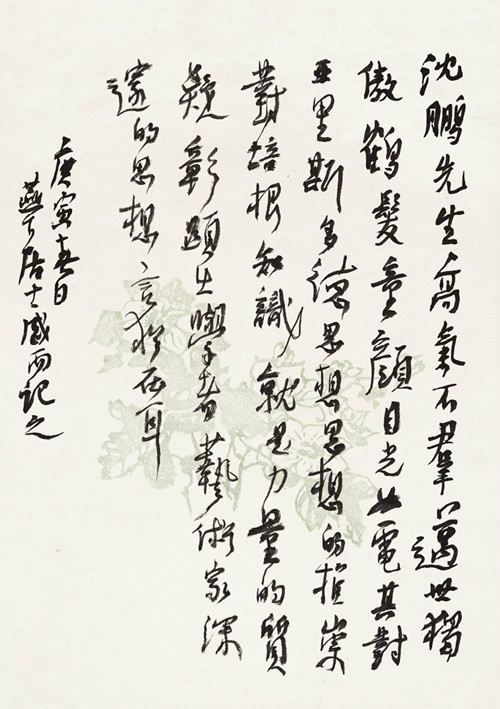 沈鵬先生高氣不羣邁世獨
傲鶴髮童顏目光如電其對
亞里斯多德思想思想的推崇
對培根知識就是力量的質
疑彰顯出學者藝術家深
邃的思想言猶在耳
庚寅春日
居士感而記之